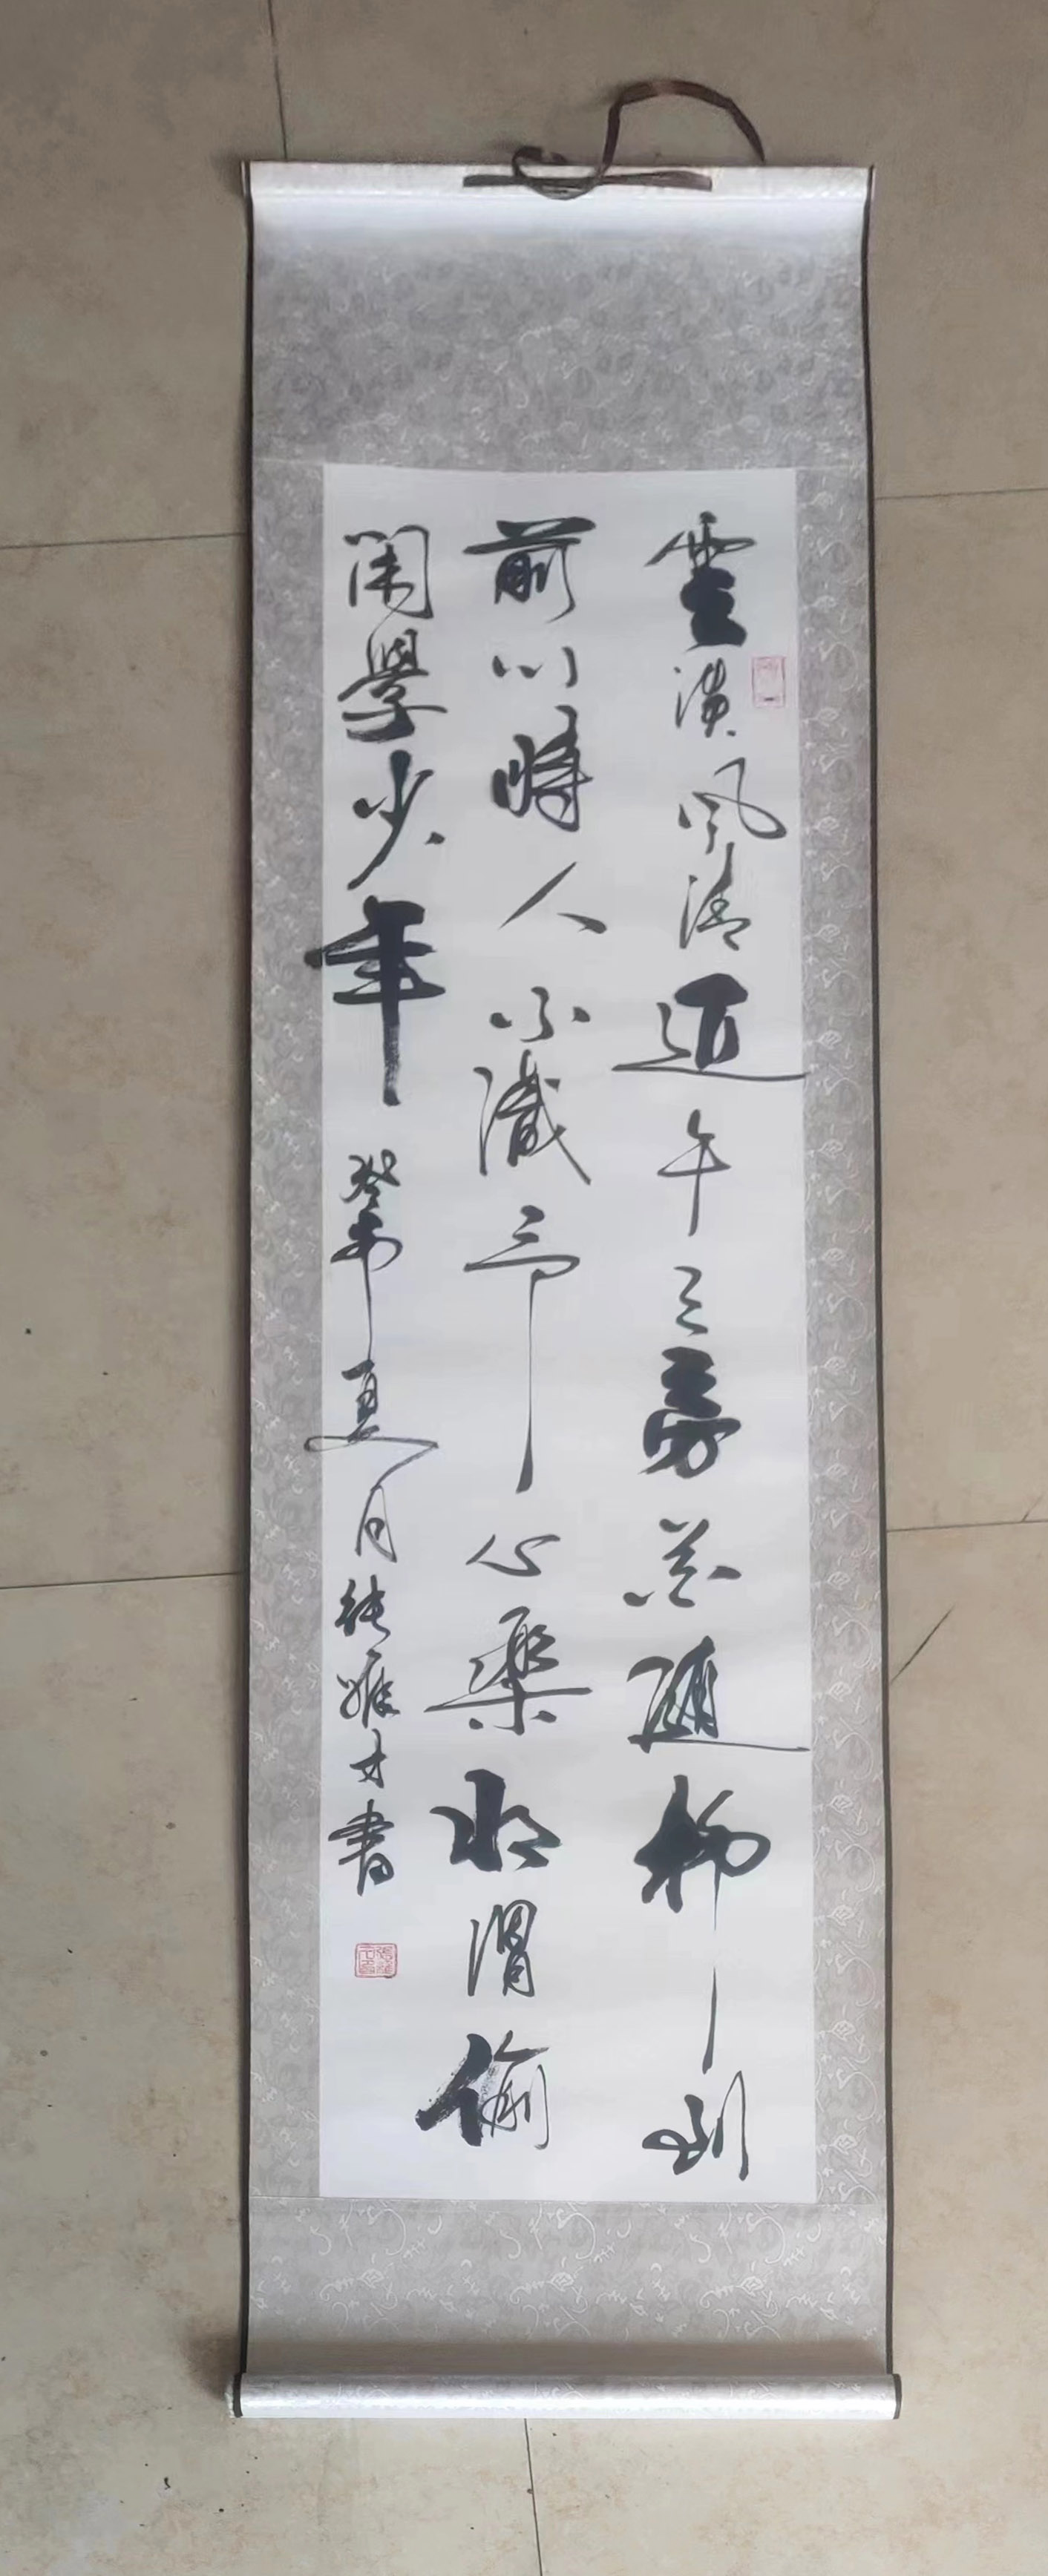 雲淡風清近午天旁花隨柳到
前川時人不識予心樂將謂偷
閑學少年 癸卯夏月張維才書